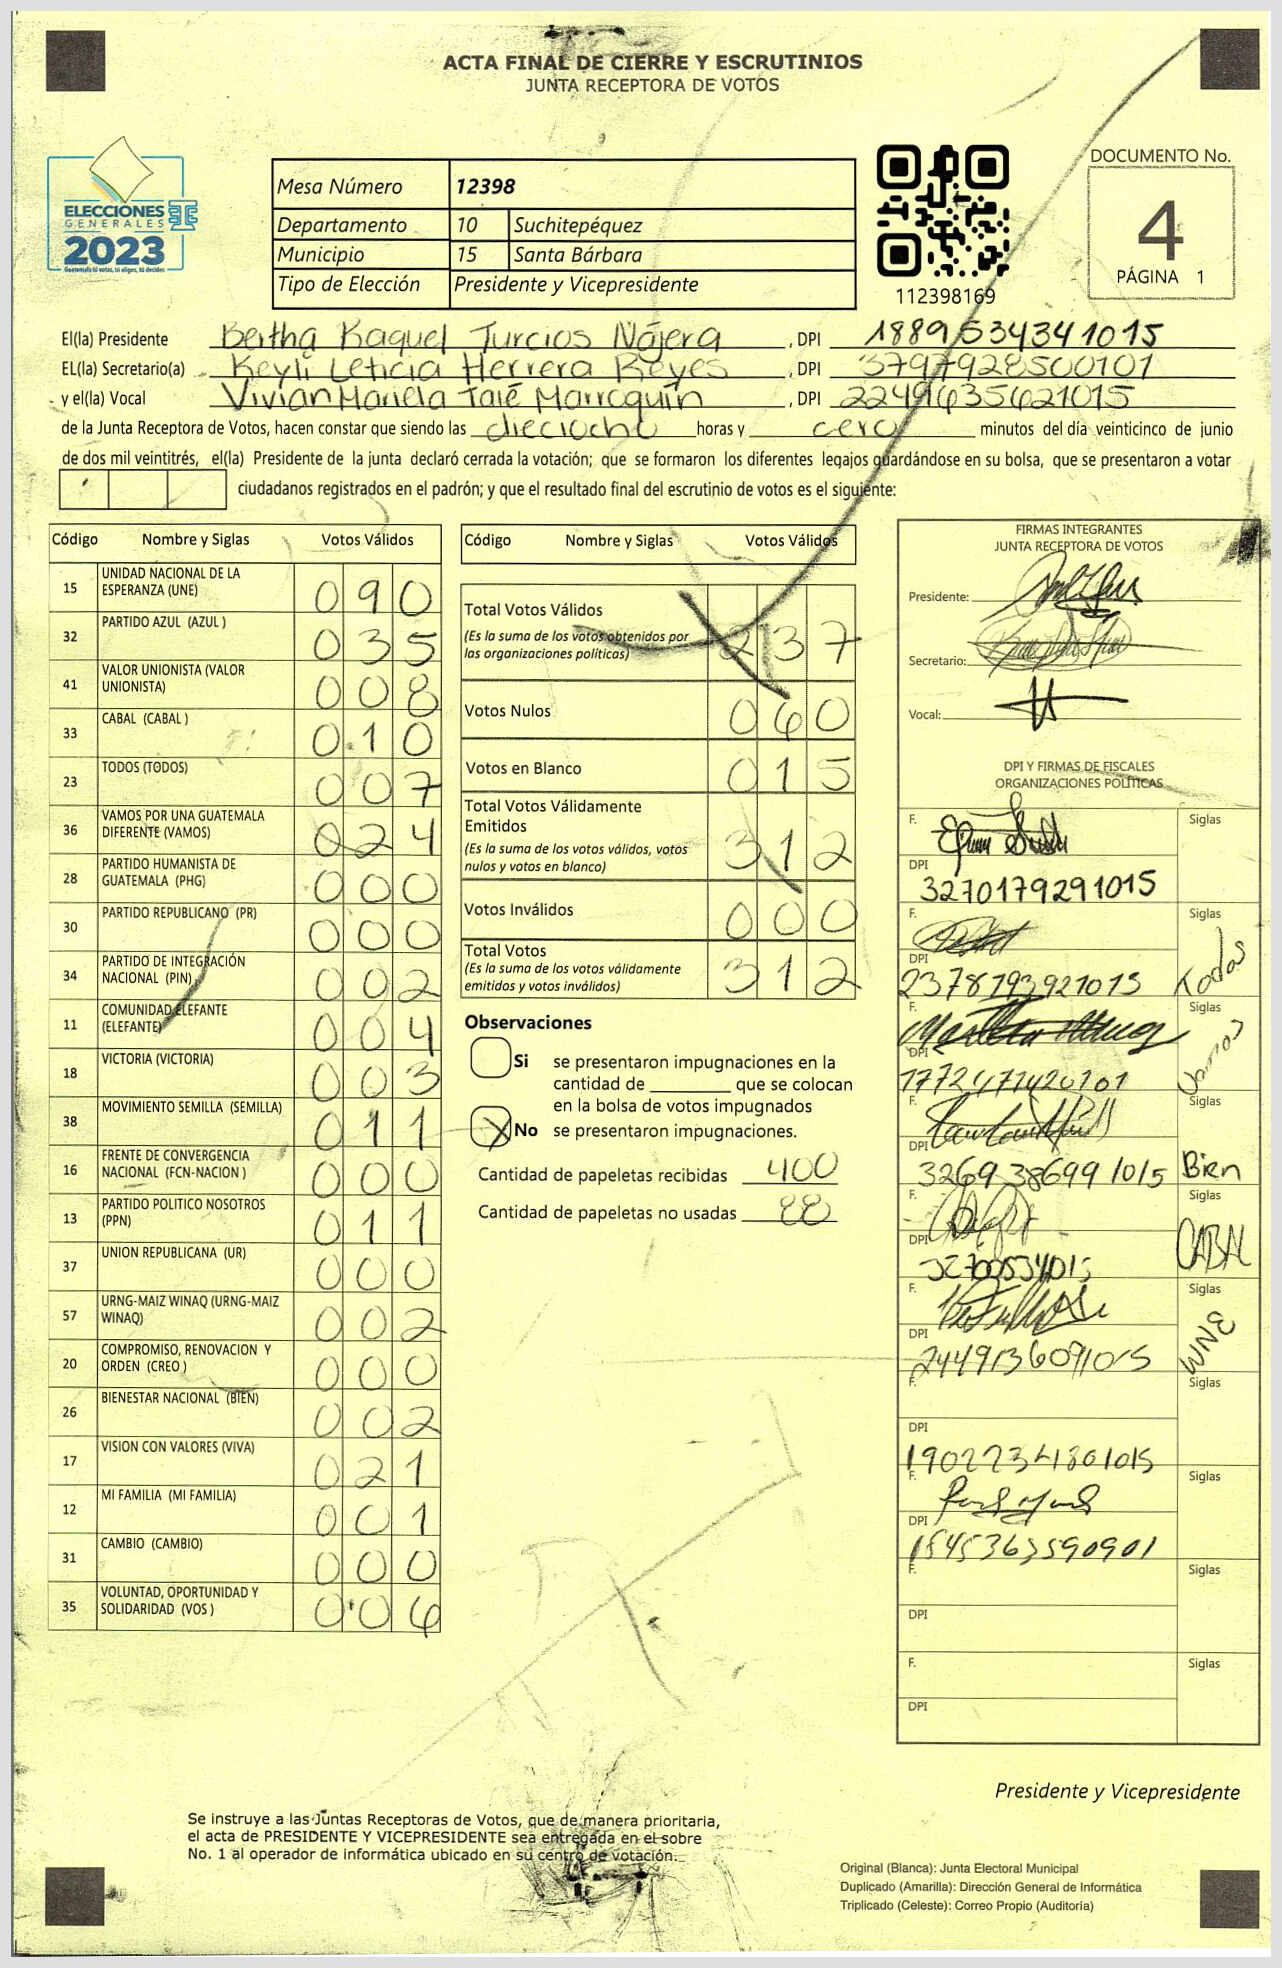 ACTA FINAL DE CIERRE Y ESCRUTINIOS
JUNTA RECEPTORA DE VOTOS
ELECCIONES
GENERALES
2023
Guatemala tú votas, tú eliges, tú decides
Mesa Número 12398
Departamento 10 Suchitepéquez
Municipio 15 Santa Bárbara
Tipo de Elección Presidente y Vicepresidente
112398169
DOCUMENTO No.
4
PÁGINA 1
El(la) Presidente Bertha Raquel Turcios Nájera, DPI 1889534341015
EL(la) Secretario(a) Keyli Leticia Herrera Reyes, DPI 3797928500101
y el(la) Vocal Vivian Mariela Taié Marroquín, DPI 2249635621015
de la Junta Receptora de Votos, hacen constar que siendo las dieciocho horas y cero minutos del día veinticinco de junio
de dos mil veintitrés, el(la) Presidente de la junta declaró cerrada la votación; que se formaron los diferentes legajos guardándose en su bolsa, que se presentaron a votar
ciudadanos registrados en el padrón; y que el resultado final del escrutinio de votos es el siguiente:
Código Nombre y Siglas Votos Válidos
15 UNIDAD NACIONAL DE LA ESPERANZA (UNE) 090
32 PARTIDO AZUL (AZUL ) 035
41 VALOR UNIONISTA (VALOR UNIONISTA) 008
33 CABAL (CABAL ) 010
23 TODOS (TODOS) 007
36 VAMOS POR UNA GUATEMALA DIFERENTE (VAMOS) 024
28 PARTIDO HUMANISTA DE GUATEMALA (PHG) 000
30 PARTIDO REPUBLICANO (PR) 000
34 PARTIDO DE INTEGRACIÓN NACIONAL (PIN) 002
11 COMUNIDAD ELEFANTE (ELEFANTE) 004
18 VICTORIA (VICTORIA) 003
38 MOVIMIENTO SEMILLA (SEMILLA) 011
16 FRENTE DE CONVERGENCIA NACIONAL (FCN-NACION ) 000
13 PARTIDO POLITICO NOSOTROS (PPN) 011
37 UNION REPUBLICANA (UR) 000
57 URNG-MAIZ WINAQ (URNG-MAIZ WINAQ) 002
20 COMPROMISO, RENOVACION Y ORDEN (CREO ) 000
26 BIENESTAR NACIONAL (BIEN) 002
17 VISION CON VALORES (VIVA) 021
12 MI FAMILIA (MI FAMILIA) 001
31 CAMBIO (CAMBIO) 000
35 VOLUNTAD, OPORTUNIDAD Y SOLIDARIDAD (VOS ) 006
Código Nombre y Siglas Votos Válidos
Total Votos Válidos 237
(Es la suma de los votos obtenidos por
las organizaciones políticas)
Votos Nulos 060
Votos en Blanco 015
Total Votos Válidamente
Emitidos 312
(Es la suma de los votos válidos, votos
nulos y votos en blanco)
Votos Inválidos 000
Total Votos 312
(Es la suma de los votos válidamente
emitidos y votos inválidos)
Observaciones
Si se presentaron impugnaciones en la
cantidad de ________ que se colocan
en la bolsa de votos impugnados
X No se presentaron impugnaciones.
Cantidad de papeletas recibidas 400
Cantidad de papeletas no usadas 88
FIRMAS INTEGRANTES
JUNTA RECEPTORA DE VOTOS
Presidente:
Secretario:
Vocal:
DPI Y FIRMAS DE FISCALES
ORGANIZACIONES POLÍTICAS
F. Siglas
DPI
3270179291015
F. Siglas
DPI
2378193921015 Todos
F. Siglas
DPI
1772471420101 Vamos
F. Siglas
DPI
3269386991015 Bien
F. Siglas
DPI
CABAL
F. Siglas
DPI
2449136091015 UNE
F. Siglas
DPI
1902234181015
F. Siglas
DPI
1545363590901
F. Siglas
DPI
F. Siglas
DPI
Presidente y Vicepresidente
Se instruye a las Juntas Receptoras de Votos, que de manera prioritaria,
el acta de PRESIDENTE Y VICEPRESIDENTE sea entregada en el sobre
No. 1 al operador de informática ubicado en su centro de votación.
Original (Blanca): Junta Electoral Municipal
Duplicado (Amarilla): Dirección General de Informática
Triplicado (Celeste): Correo Propio (Auditoría)